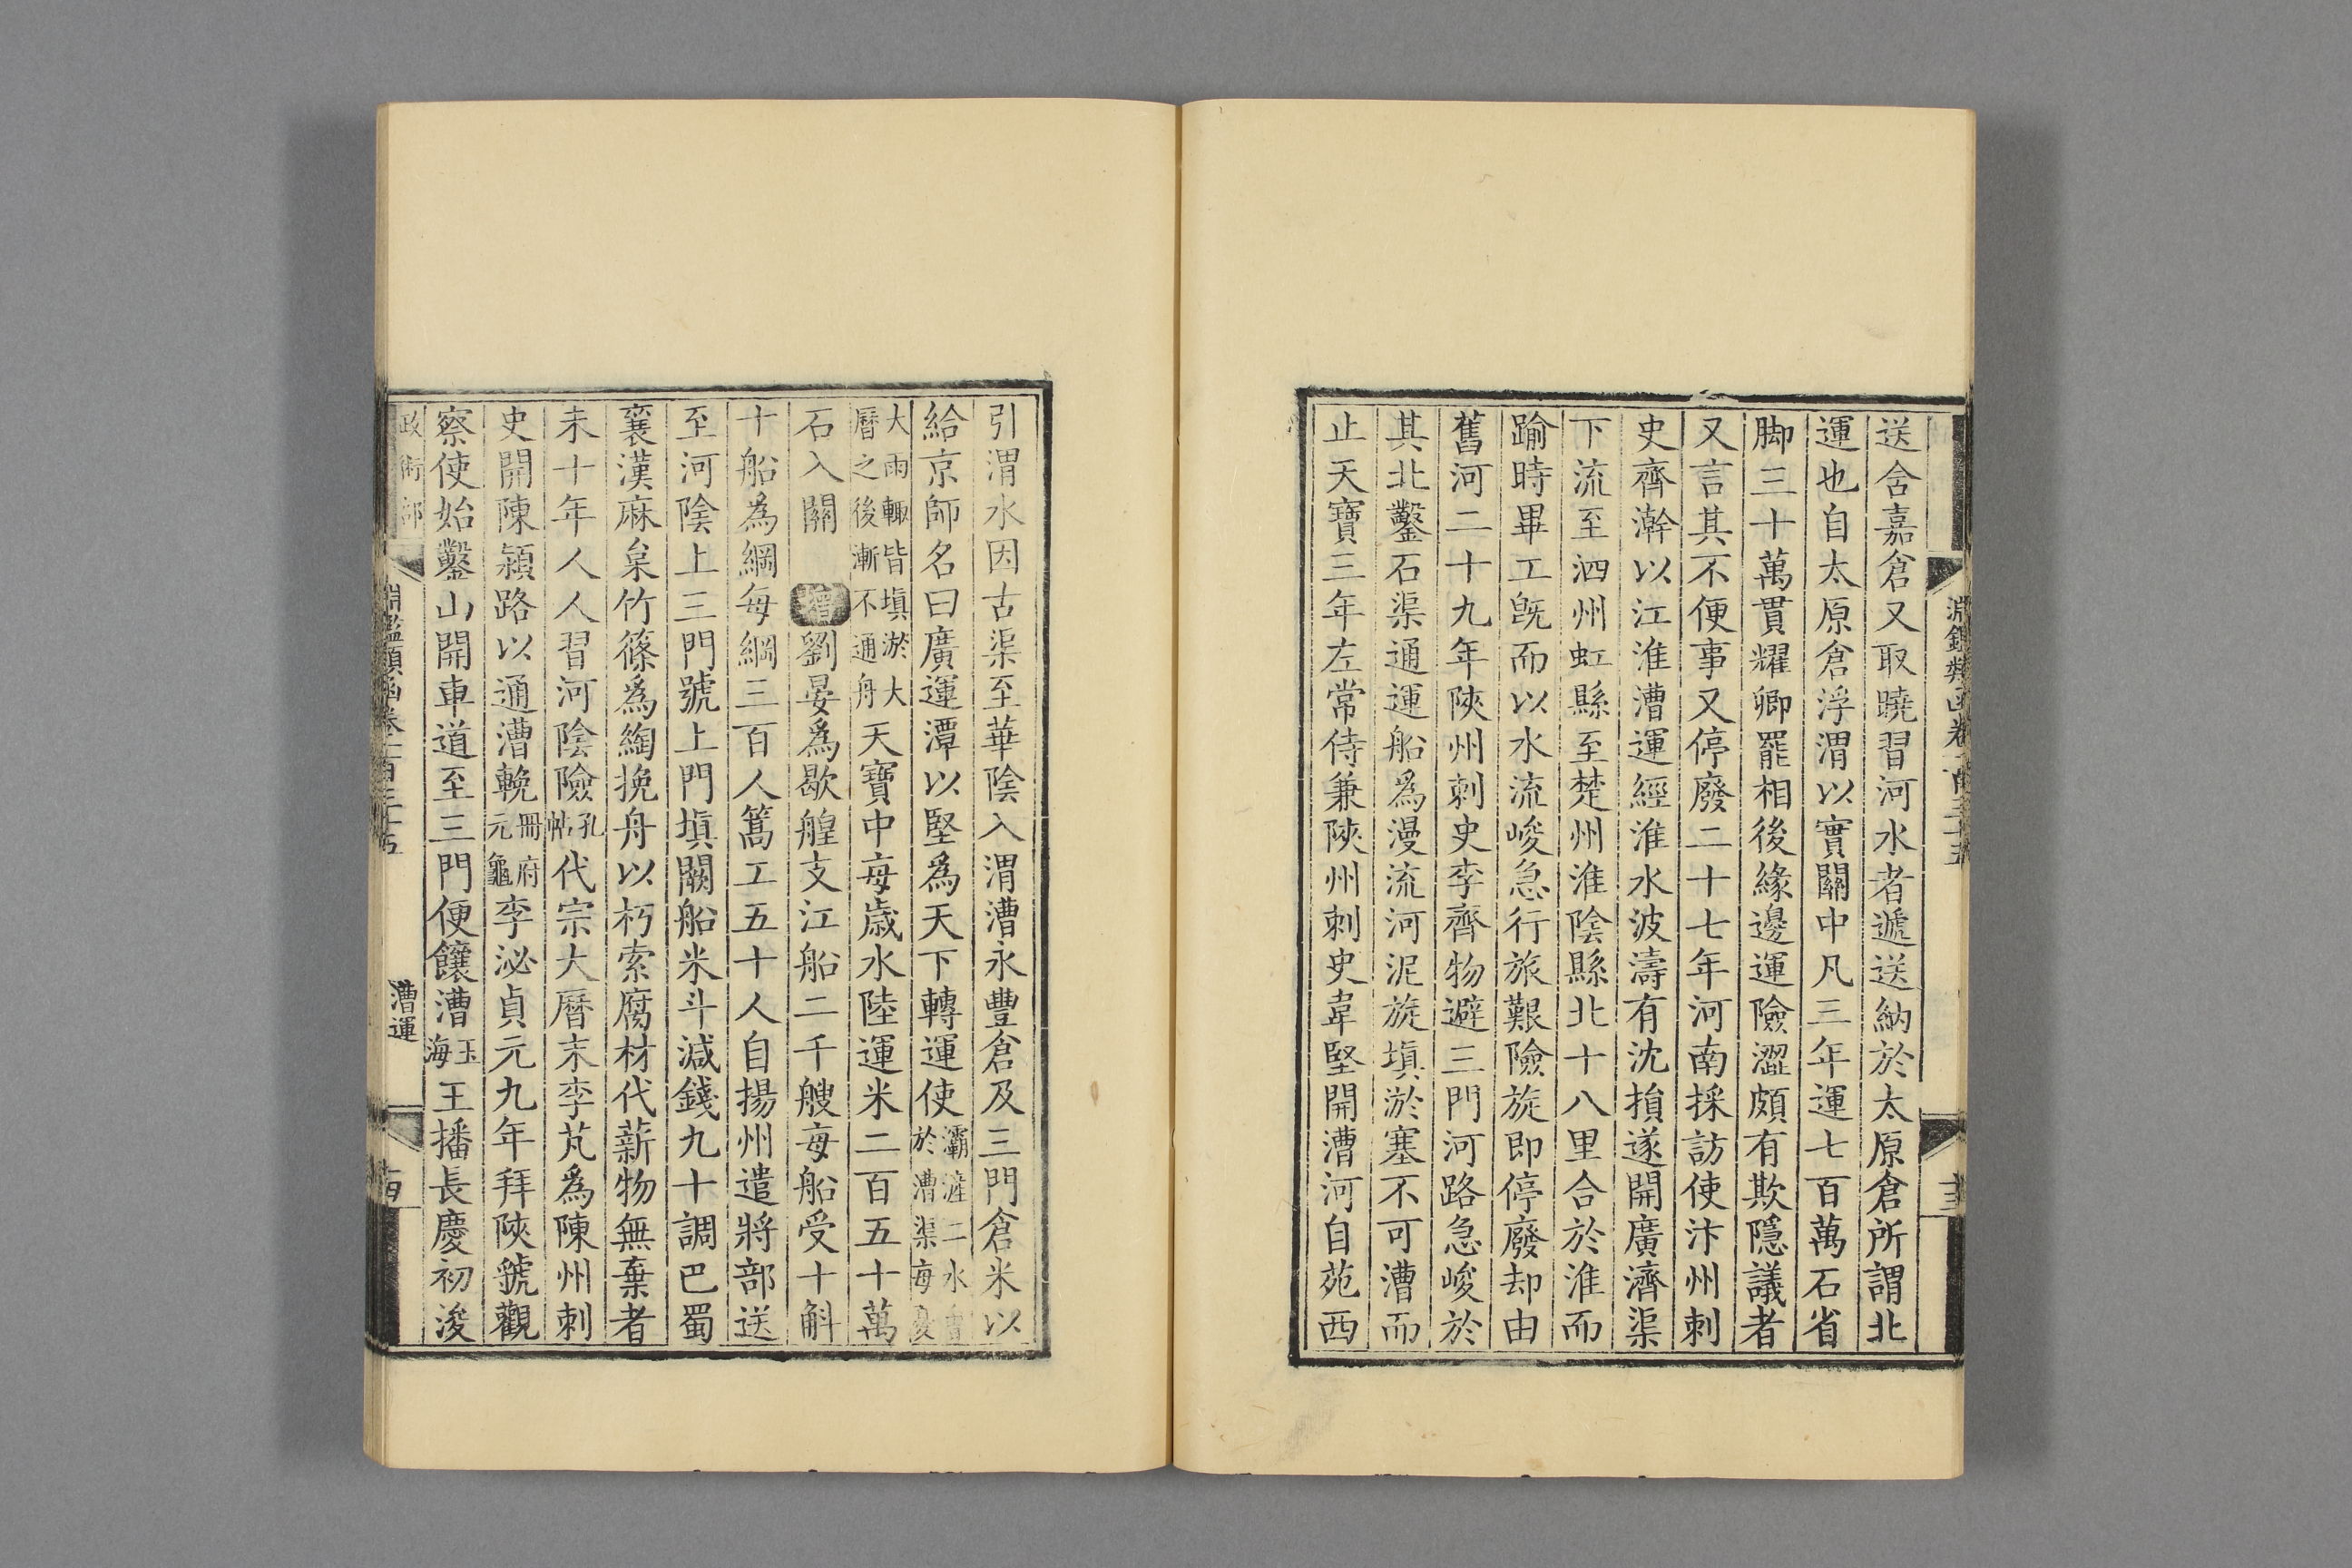 送含嘉倉又取曉習河水者遞送納於太原倉所謂北
運也自太原倉浮渭以實關中凡三年運七百萬石省
脚三十萬貫耀卿罷相後緣邊運險澀頗有欺隱議者
又言其不便事又停廢二十七年河南採訪使汴州刺
史齊澣以江淮漕運經淮水波濤有沈損遂開廣濟渠
下流至泗州虹縣至楚州淮陰縣北十八里合於淮而
踰時畢工旣而以水流峻急行旅艱險旋即停廢却由
舊河二十九年陝州刺史李齊物避三門河路急峻於
其北鑿石渠通運船爲漫流河泥旋塡淤塞不可漕而
止天寶三年左常侍兼陝州刺史韋堅開漕河自苑西
引渭水因古渠至華陰入渭漕永豐倉及三門倉米以
給京師名曰廣運潭以堅爲天下轉運使灞滻二水會於漕渠每夏
大雨輙皆塡淤大曆之後漸不通舟天寶中每歲水陸運米二百五十萬
石入關 增劉晏爲歇艎支江船二千艘每船受十斛
十船爲綱每綱三百人篙工五十人自揚州遣將部送
至河陰上三門號上門塡闕船米斗減錢九十調巴蜀
襄漢麻枲竹篠爲綯挽舟以朽索腐材代薪物無棄者
未十年人人習河陰險孔帖代宗大曆末李芃爲陳州刺
史開陳潁路以通漕輓冊府元龜李泌貞元九年拜陝虢觀
察使始鑿山開車道至三門便饟漕玉海王播長慶初浚
政術部 淵鑑類函卷一百三十五 漕運 十四